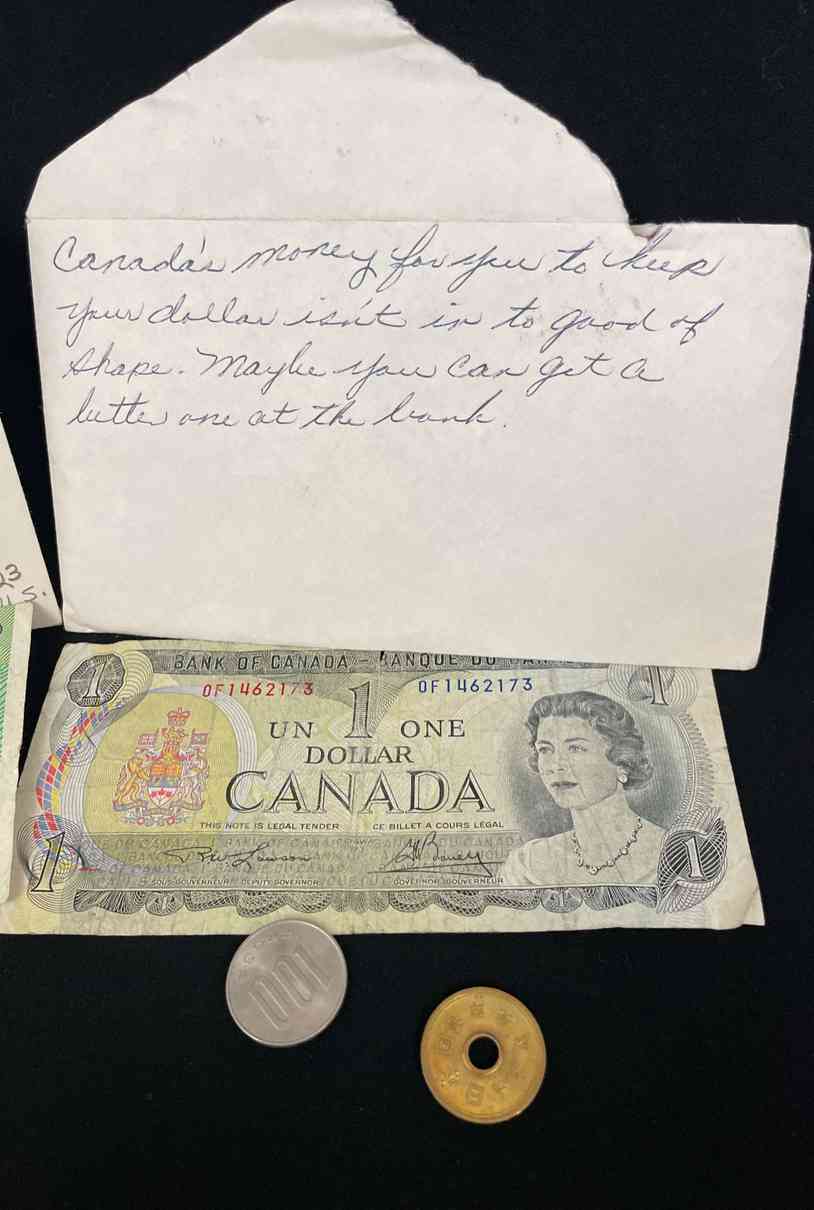 Canada's money for you to keep
your dollar isn't in to good of
shape. Maybe you can get a
better one at the bank.
23
S.
BANK OF CANADA – BANQUE DU CANADA
1 1
OF1462173 1 OF1462173
UN ONE
DOLLAR
CANADA
THIS NOTE IS LEGAL TENDER CE BILLET A COURS LÉGAL
R W Lawson
SOUS-GOUVERNEUR DEPUTY GOVERNOR GOVERNOR GOUVERNEUR
1 1
100